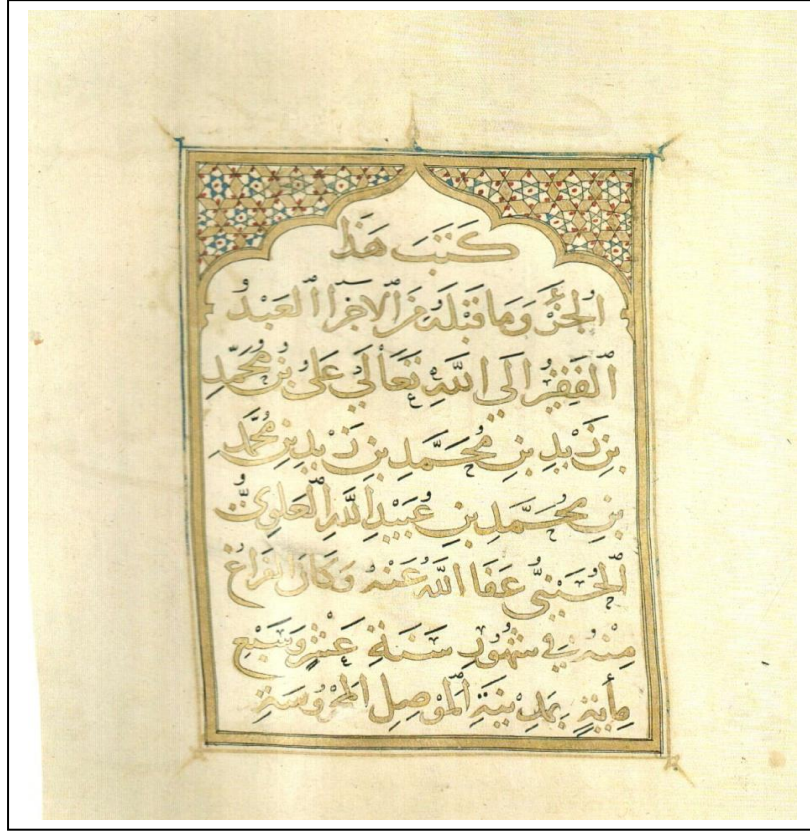 كَتَبَ هَذَا
الجُزْءَ وَمَا قَبْلَهُ مِنَ الاَجْزَاءِ العَبْدُ
الفَقِيرُ اِلَى اللهِ تَعَالَى عَلِىُّ بْنُ مُحَمَّدِ
بنِ زَيْدِ بنِ مُحَمَّدِ بنِ زَيْدِ بنِ مُحَمَّدِ
بنِ محَمَّدِ بنِ عُبَيْدِ اللهِ العَلَوِىُّ
الحُسَيْنِىُّ عَفَا اللهُ عَنْهُ وَكَانَ الفَرَاغُ
مِنْهُ فِى شُهُورِ سَنَةِ عَشْرٍ وَسَبْعِ
مِأيَةٍ بِمَدِينَةِ المَوْصِلِ المَحْرُوسَةِ